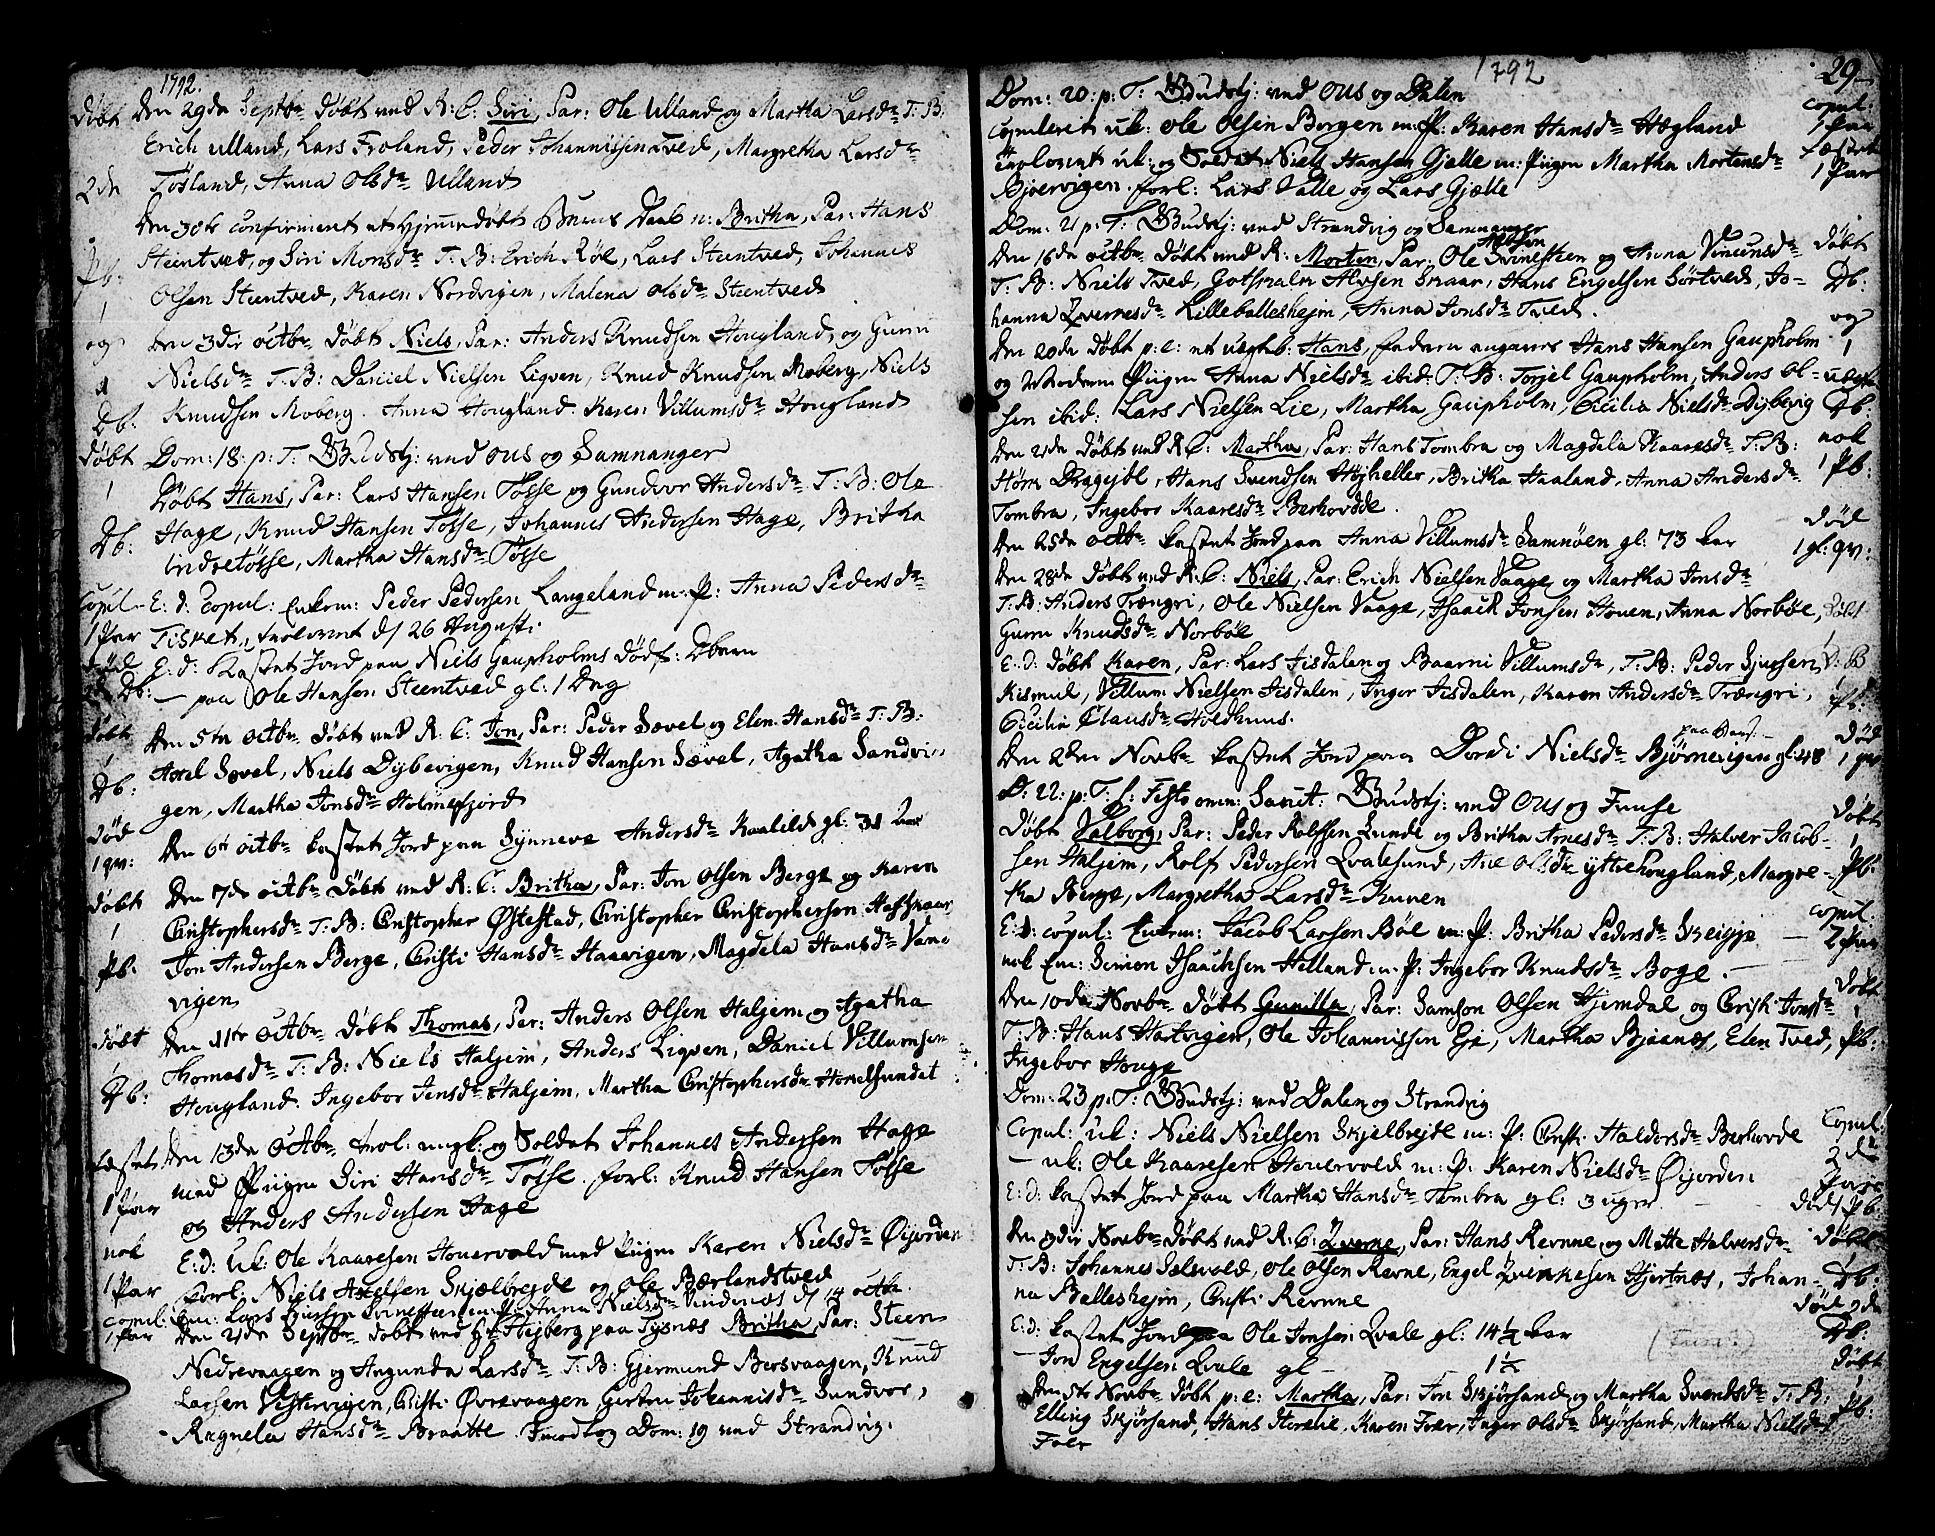 1792.
døbt Den 29de Septbr. døbt ved R: C: Siri, Par: Ole Ulland og Martha Larsdr. T: B:
Erich Ulland, Lars Froland, Peder Johannissen Tved, Margretha Larsdr.
2de Tøsland, Anna Olsdr. Ulland
Den 30te confirmeret et hjemmedøbt Barns Daab n: Britha, Par: Hans
Pb: Steentved, og Siri Monsdr. T: B: Erich Røe, Lars Steentved, Johannes
1 Olsen Steentved, Karen Nordvigen, Malena Olsdr. Steentved
og Den 3die Octbr. døbt Niels, Par: Anders Knudsen Hougland, og Guru
1 Nielsdr. T: B: Daniel Nielsen Liqven, Knud Knudsen Moberg, Niels
Db: Knudsen Moberg. Anna Hougland. Karen Villumsdr. Hougland
døbt Dom: 18. p: T. Gudstj: ved Ous og Samnanger
1 Døbt Hans, Par: Lars Hansen Tøsse og Gundvor Andersdr. T: B: Ole
Db: Hage, Knud Hansen Tøsse, Johannes Andersen Hage, Britha
Indretøsse, Martha Hansdr. Tøsse
Copul- E: d: Copul: Enkem: Peder Pedersen Langeland m: P: Anna Pedersdr.
1 Par Tisket, trolovent d/ 26 Augusti
død E: d: Kastet Jord paa Niels Gaupholms dødf: Dbarn
2de Db: — paa Ole Hansen Steentved gl: 1 Dag
døbt Den 5te Octbr. døbt ved R: C: Jon, Par: Peder Sævel og Elen Hansdr. T: B:
1 Axel Sævel, Niels Dybevigen, Knud Hansen Sævel, Agatha Sandvi-
Db: gen, Martha Jonsdr. Holmefjord
død Den 6te Octbr. kastet Jord paa Synneve Andersdr. Kaalild gl: 31 Aar
1 qv:
døbt Den 7de Octbr. døbt ved R: C: Britha, Par: Jon Olsen Berge og Karen
1 Christophersdr. T: B: Christopher Østestad, Christopher Christophersen Hafskaar
Pb: Jon Andersen Berge, Christi Hansdr. Haavigen, Magdela Hansdr. Vam-
vigen
døbt Den 11te Octbr. døbt Thomas, Par: Anders Olsen Haljem og Agatha
1 Thomasdr. T: B: Niels Haljem, Anders Liqven, Daniel Villumsen
Db: Hougland. Ingebor Jensdr. Haljem, Martha Christophersdr. Hovelsundet
fæstet Den 13de Octbr. trol: ungk: og Soldat Johannes Andersen Hage
1 Par med Pigen Siri Hansdr. Tøsse. forl: Knud Hansen Tøsse
og Anders Andersen Hage
nok E: d: Uk: Ole Kaaresen Houervold med Pigen Karen Nielsdr. Øijorden
1 Par forl: Niels Axelsen Skjælbrejde og Ole Bærlandstved
copul: Em: Lars Svinesteen m: P: Anna Nielsdr. Vindenæs d/ 14 Octbr.
1 Par Den 21de Septbr. døbt ved Hr. Heiberg paa Tysnæs Britha, Par: Steen
Nedrevaagen og Angunda Larsdr. T: B: Gjermund Bersvaagen, Knud
Larsen Vestervigen, Christi Øvrevaagen, Gurtru Johannisdr. Sundvor,
Ragnela Hansdr. Braatte. Dom: 19 ved Strandvig.
1792 29
Dom: 20: p: T: Gudstj: ved Ous og Dalen
copuleret uk: Ole Olsen Borgen m: P: Karen Hansdr. Hægland copul: 1 Par
Trolovent uk: og Soldat Niels Hansen Gjelle m: Pigen Martha Mortensdr. fæstet
Bjørvigen. forl: Lars Valle og Lars Gjælle 1 Par
Dom: 21 p: T: Gudstj: ved Strandvig og Samnanger
Den 16de Octbr. døbt ved R: Morten, Par: Ole Nilsen Svinesteen og Anna Vincensdr. døbt
T: B: Niels Tved, Gotskalm Alvsen Skaar, Hans Engelsen Sørtved, Jo- Db:
hanna Qvernesdr. Lilleballeshejm, Anna Jonsdr. Tved. og
Den 20de døbt p: e: et uægteb: Hans, faderen angaves Hans Hansen Gaupholm 1
og Moderen Pigen Anna Nielsdr. ibid: T: B: Torjel Gaupholm, Anders Ol- uægte
sen ibid: Lars Nielsen Lie, Martha Gaupholm, Cicilia Nielsdr. Dybevig Db:
Den 21de døbt ved R: C: Martha, Par: Hans Tombra og Magdela Kaaresdr. T: B: nok
Høen Dragejbl, Hans Svendsen Højheller, Britha Haaland, Anna Andersdr. 1 Pb:
Tombra, Ingebor Kaaresdr. Berhovdde.
Den 25de Octbr. kastet Jord paa Anna Villumsdr. Samnøen gl: 73 Aar død 1 gl: qv:
Den 28de døbt ved R: C: Niels, Par: Erich Nielsen Vaage og Martha Jonsdr.
T: B: Anders Trængri, Ole Nielsen Vaage, Isaack Jonsen Houen, Anna Norbøe, døbt
Guru Knudsdr. Norbøe
E: d: døbt Karen, Par: Lars Jisdalen og Baarni Villumsdr., T: B: Peder Sjursen D: B
Kismul, Villum Nielsen Jisdalen, Inger Jisdalen, Karen Andersdr. Trængri, Pb:
Cicilia Clausdr. Holdhuus.
Den 2den Novbr. kastet Jord paa Dordi Nielsdr. Bjørnevigen gl: 48 død 1 qv
D: 22: p: T: f: Festo omn: Sanct: Gudstj: ved Ous og Fuuse
Døbt Valborg, Par: Peder Rolfsen Lunde og Britha Arnesdr. T: B: Halver Jacob- døbt
sen Haljem, Rolf Pedersen Qvalesund, Ane Olsdr. Yttrehougland, Margre- Pb:
tha Berge, Margretha Larsdr. Kunen
E: d: copul: Enkem: Jacob Larsen Bøe m: P: Britha Pedersdr. Skeisje — copul 2 Par
nok Em: Simon Isaachsen Helland m: P: Ingebor Knudsdr. Boge. —
Den 10de Novbr. døbt Gunilla, Par: Samson Olsen Hjemdal og Christi Jonsdr. døbt
T: B: Hans Hatvigen, Ole Johannissen Eje, Martha Bjaanæs, Elen Tved, Pb:
Ingebor Houge
Dom: 23 p: T: Gudstj: ved Dalen og Strandvig
Copul: uk: Niels Nielsen Skjelbrejde m: P: Christi Haldorsdr. Berhovde Copul:
— uk: Ole Kaaresen Houervold m: P: Karen Nielsdr. Øijorden 2de Par
E: d: kastet Jord paa Martha Hansdr. Tombra gl: 3 uger. død 1 Pb:
Den 9die Novbr. døbt ved R: C: Qverne, Par: Hans Revne og Mette Halversdr. døbt
T: B: Johannes Selsvold, Ole Olsen Revne, Engel Qvernesen Hjertnæs, Johan- Db:
na Balleshejm, Christi Revne
E: d: kastet Jord paa Ole Jonsen Qvale gl: 14½ Aar død 2de
— Jon Engelsen Qvale gl — 1½ Db:
Den 5te Novbr. døbt p: e: Martha, Par: Jon Skjørsand og Martha Svendsdr. T: B: døbt
Elling Skjørsand, Hans Storelie, Karen Foer, Inger Olsdr. Skjørsand, Martha Nielsdr. Pb:
Foer